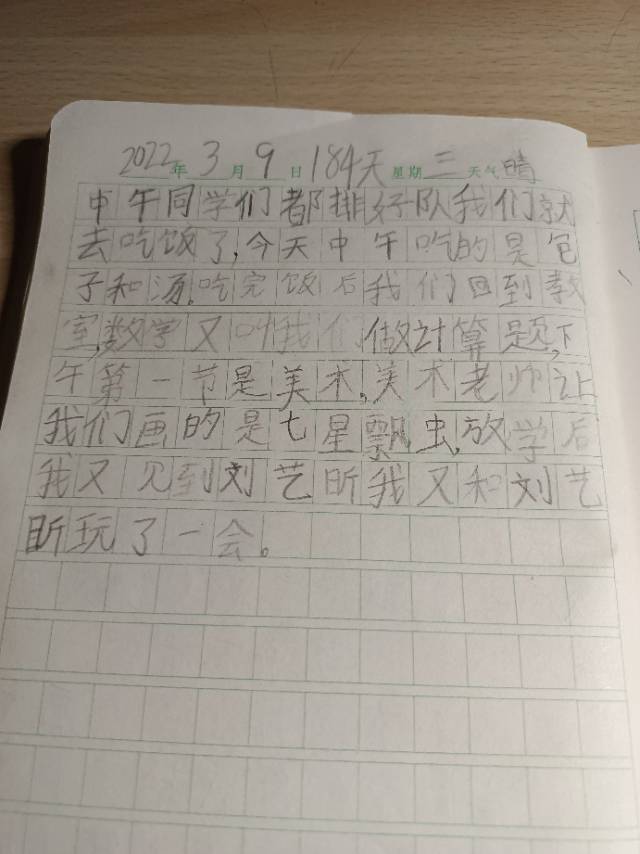 2022年3月9日184天星期三天气晴
中午同学们都排好队我们就
去吃饭了,今天中午吃的是包
子和汤,吃完饭后我们回到教
室,数学又叫我们做计算题,下
午第一节是美术,美术老师让
我们画的是七星飘虫,放学后
我又见到刘艺昕我又和刘艺
昕玩了一会。